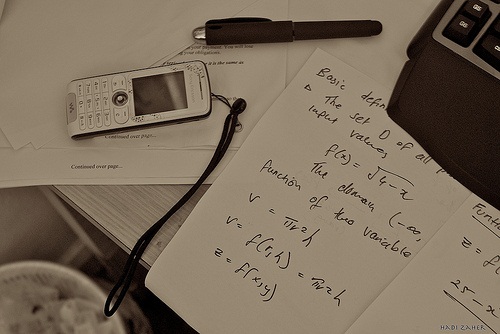 is it is the same as
Continued over page...
Continued over page...
Basic defin
The set D of all p
input values
f(x) = √4-x
The domain (-∞,
function of two variable
V = πr2h
V = f(r,h) = πr2h
z = f(x,y)
Funti
z = f
25 - x
HADI ZAHER